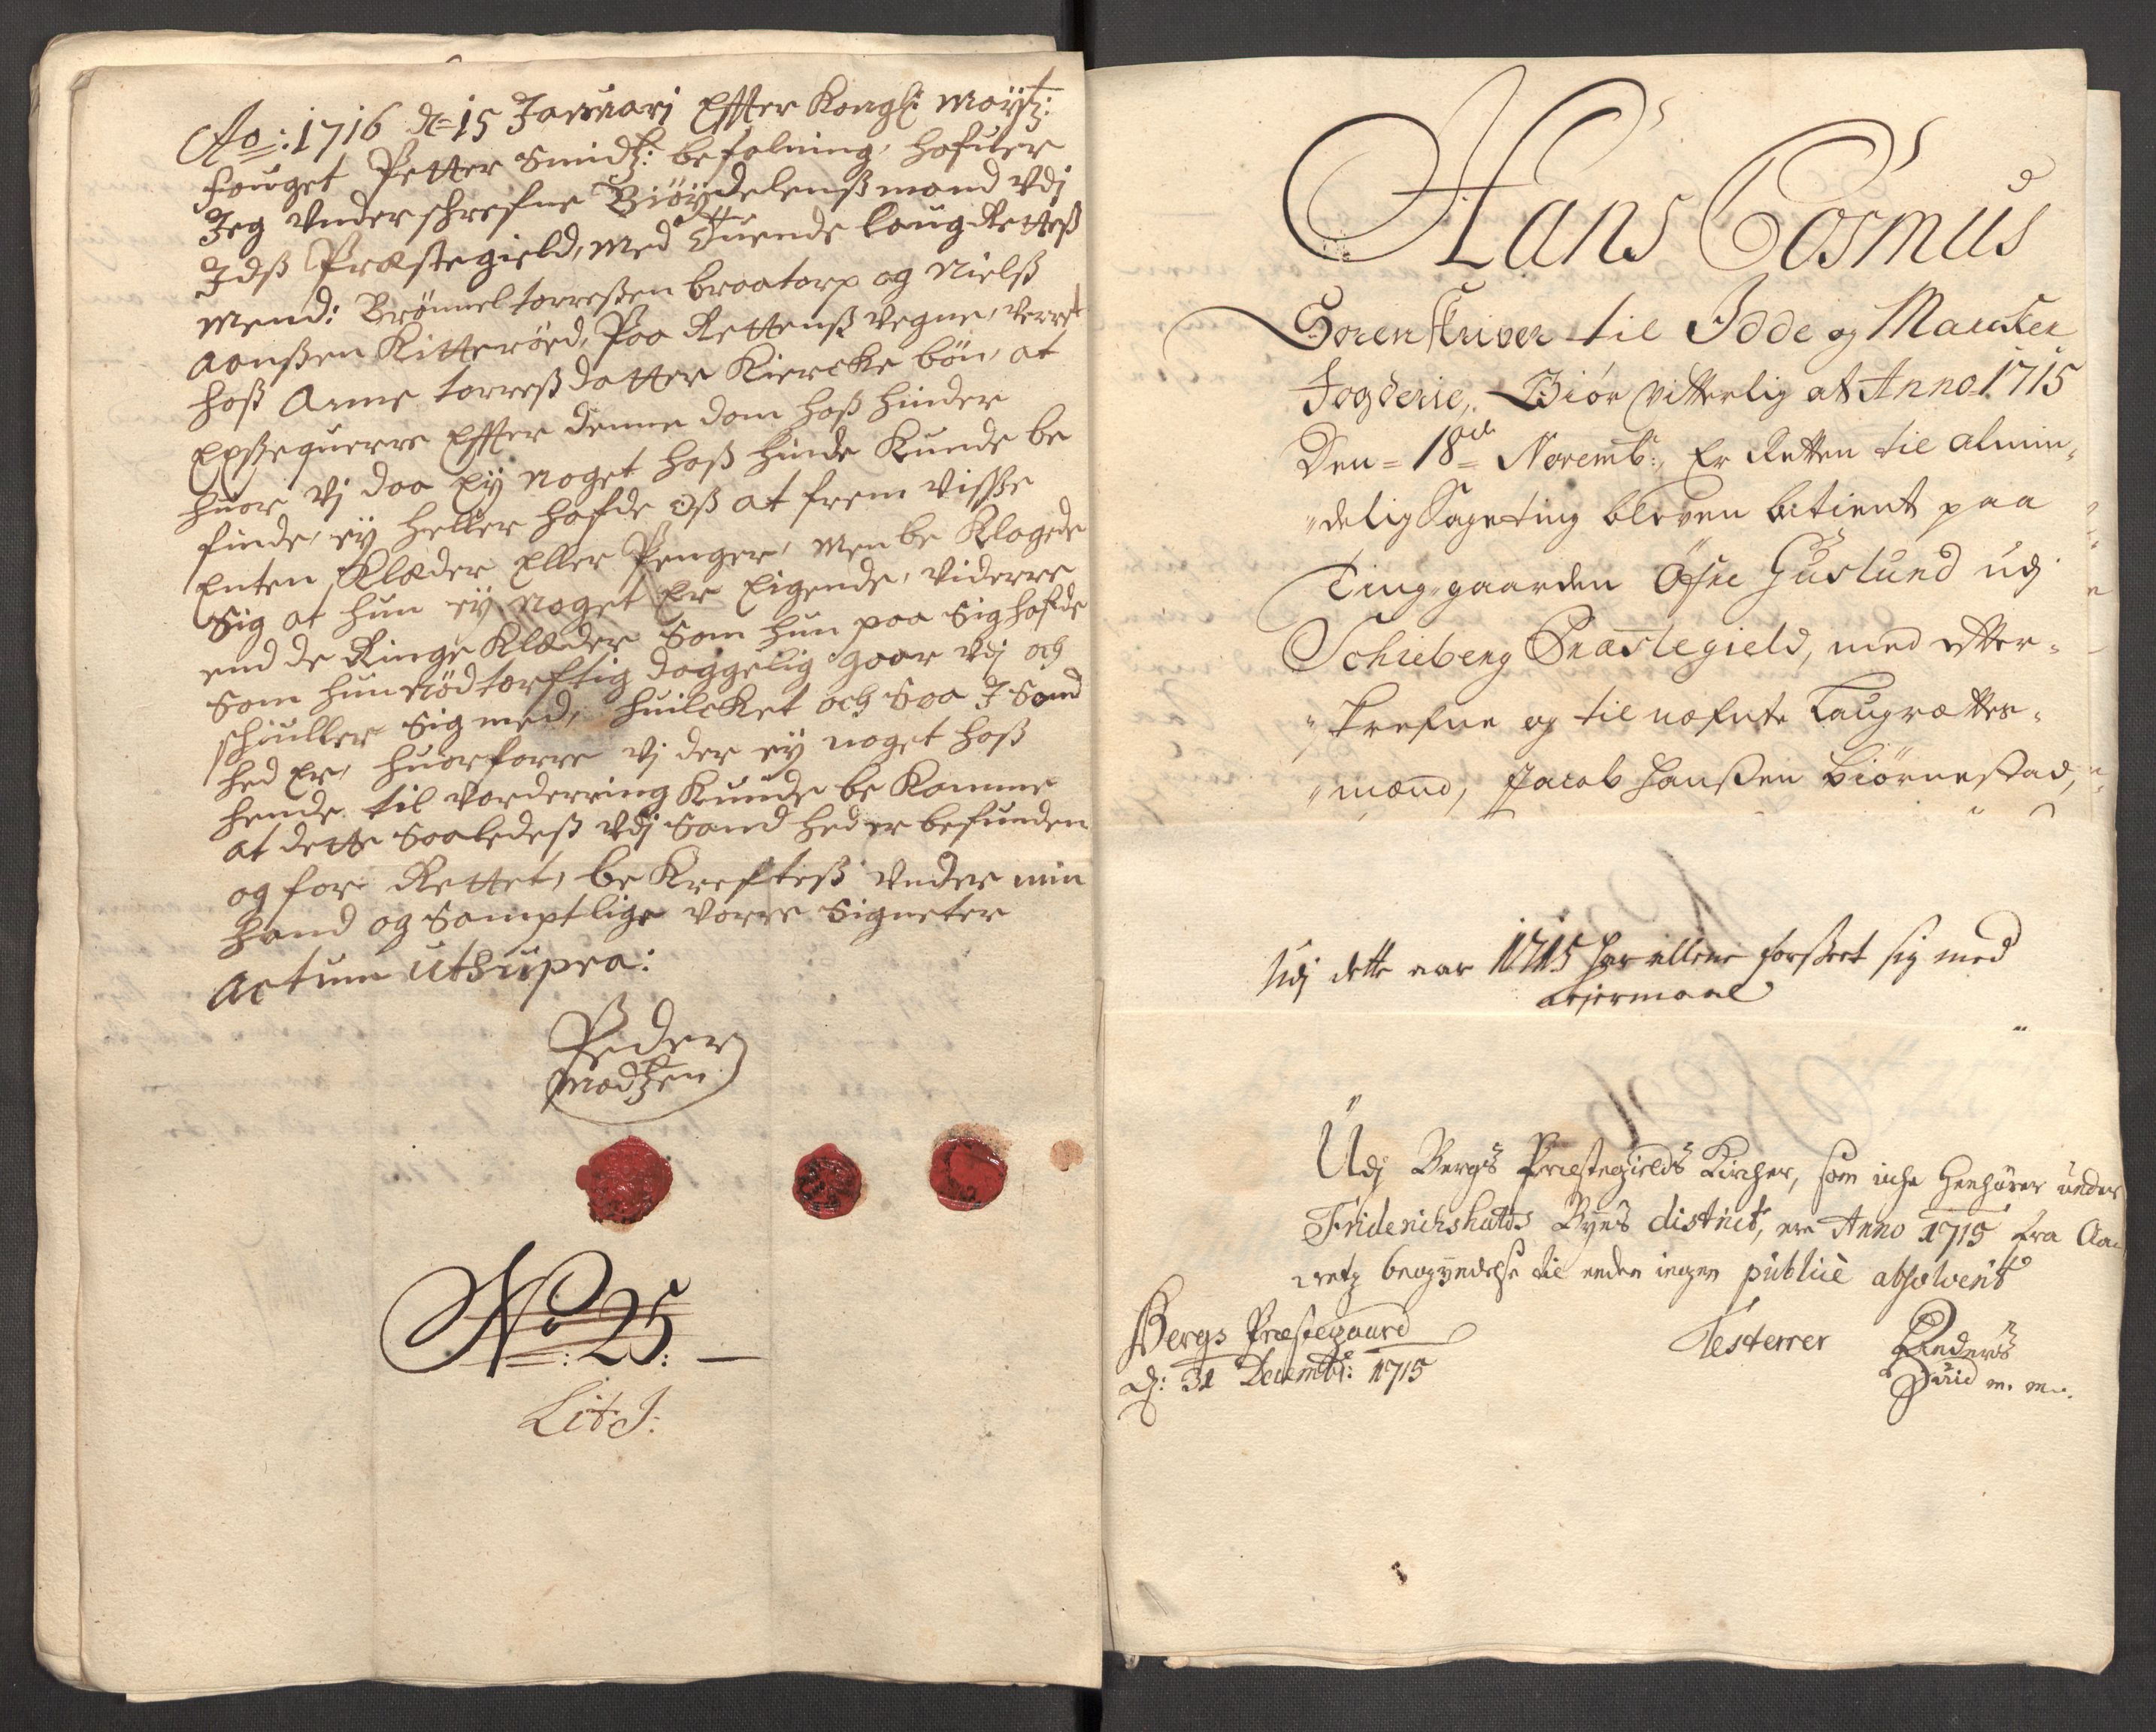 Ao: 1716 d= 15 Januarj Effter Kongl: Maÿtz:
fouget Petter Smidtz: befalning, hafuer
Jeg Underschrefne Biøÿdelenssmand Udj
Idss Præstegield, med Tuende laugRettess
Mend: Brønnel torressen braatorp og Nielss
aanssen Kitterød, Paa Rettenss vegne, verret
hoss Anne torressdatter Kiercke bøn, at
Exsseguerre Effter denne dom hoss hinder
huor Vj daa Eÿ noget hoss hinde Kunde be
finde, eÿ heller hafde oss at frem visse
Enten Klæder Eller Penger, men be Klagede
Sig at hun eÿ noget Er Eigende, viderre
end de Ringe Klæder Som hun paa Sig hafde
Som hun nødtørftig daggelig gaar Vdj och
schiuller Sig med, huilcket och Saa J Sand
hed Er, huorforre Vj der eÿ noget hoss
hende til Vorderring Kunde be Komme
at dette Saaledess Vdj Sandhed er befunden
og for Rettet, be Krefftess Under min
Hand og Samptlige Vorre Signeter
Actum Utsupra:
Peder
Madtzen
No 25:
Lit J:
Hans Cosmus
Sorenskriver til Idde og Marcker
Fogderie, Giør vitterlig at Anno 1715
Den = 18de Novemb:, Er Retten til almin-
delig Sageting bleven betient paa
Ting-gaarden Øfre Guslund udj
Schieberg Præstegield, med efter-
skrefne og til næfnte Laugrættes-
mænd, Jacob Hanssen Biørnestad,
Udj dette aar 1715 har allene forsseet sig med
Leiermaal
Udj Bergs Præstegields Kircher, som iche henhører under
Friderichshalds Byes district, ere Anno 1715 fra Aa-
rets begyndelse til enden ingen publicè absolverit
Bergs Præstegaard
d: 31 Decembr: 1715
Testerrer Anders
m. m.